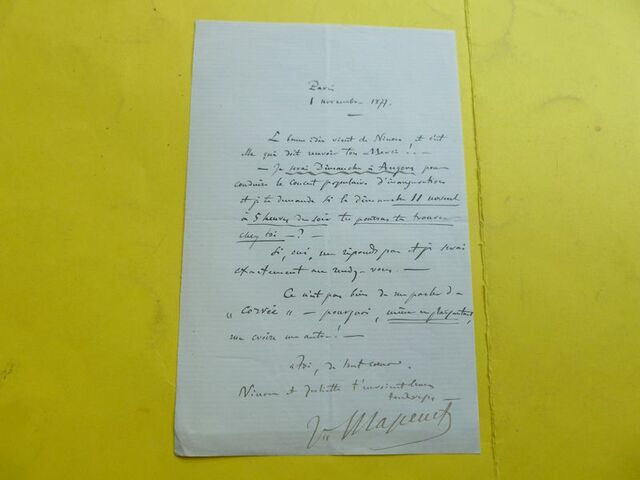 Paris
1 novembre 1877.
L'bonne idée vient de Ninon et c'est
elle qui doit recevoir ton "Merci"! -
- Je serai Dimanche à Angers pour
conduire le Concert populaire d'inauguration
et je te demande si le dimanche 11 novemb
à 5 heures du soir tu pourras te trouver
chez toi - ? -
Si, oui, ne réponds pas et je serai
exactement au rendez-vous. -
Ce n'est pas bien de me parler de
"corvée" - pourquoi, même en plaisantant,
me croire un autre! -
à toi, de tout coeur
Ninon et Juliette t'envoient leurs
J. Massenet